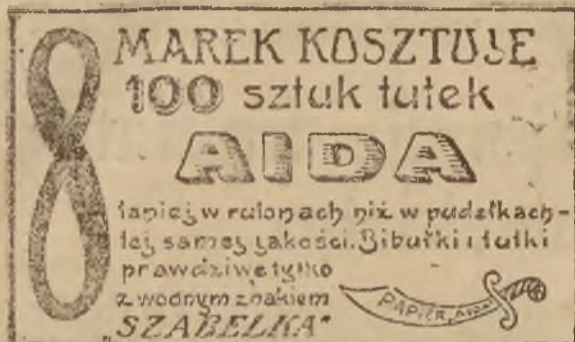 8 MAREK KOSZTUJE
100 sztuk tutek
AIDA
taniej w rulonach niż w pudełkach -
tej samej jakości. Bibułki i tutki
prawdziwe tylko
z wodnym znakiem
„SZABELKA"
PAPIER